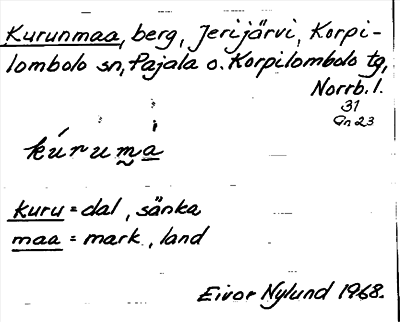 Kurunmaa, berg, Jerijärvi, Korpi-
lombolo sn, Pajala o. Korpilombolo tg,
Norrb. l.
31
Qn 23
kúruma̰
kuru = dal, sänka
maa = mark, land
Eivor Nylund 1968.